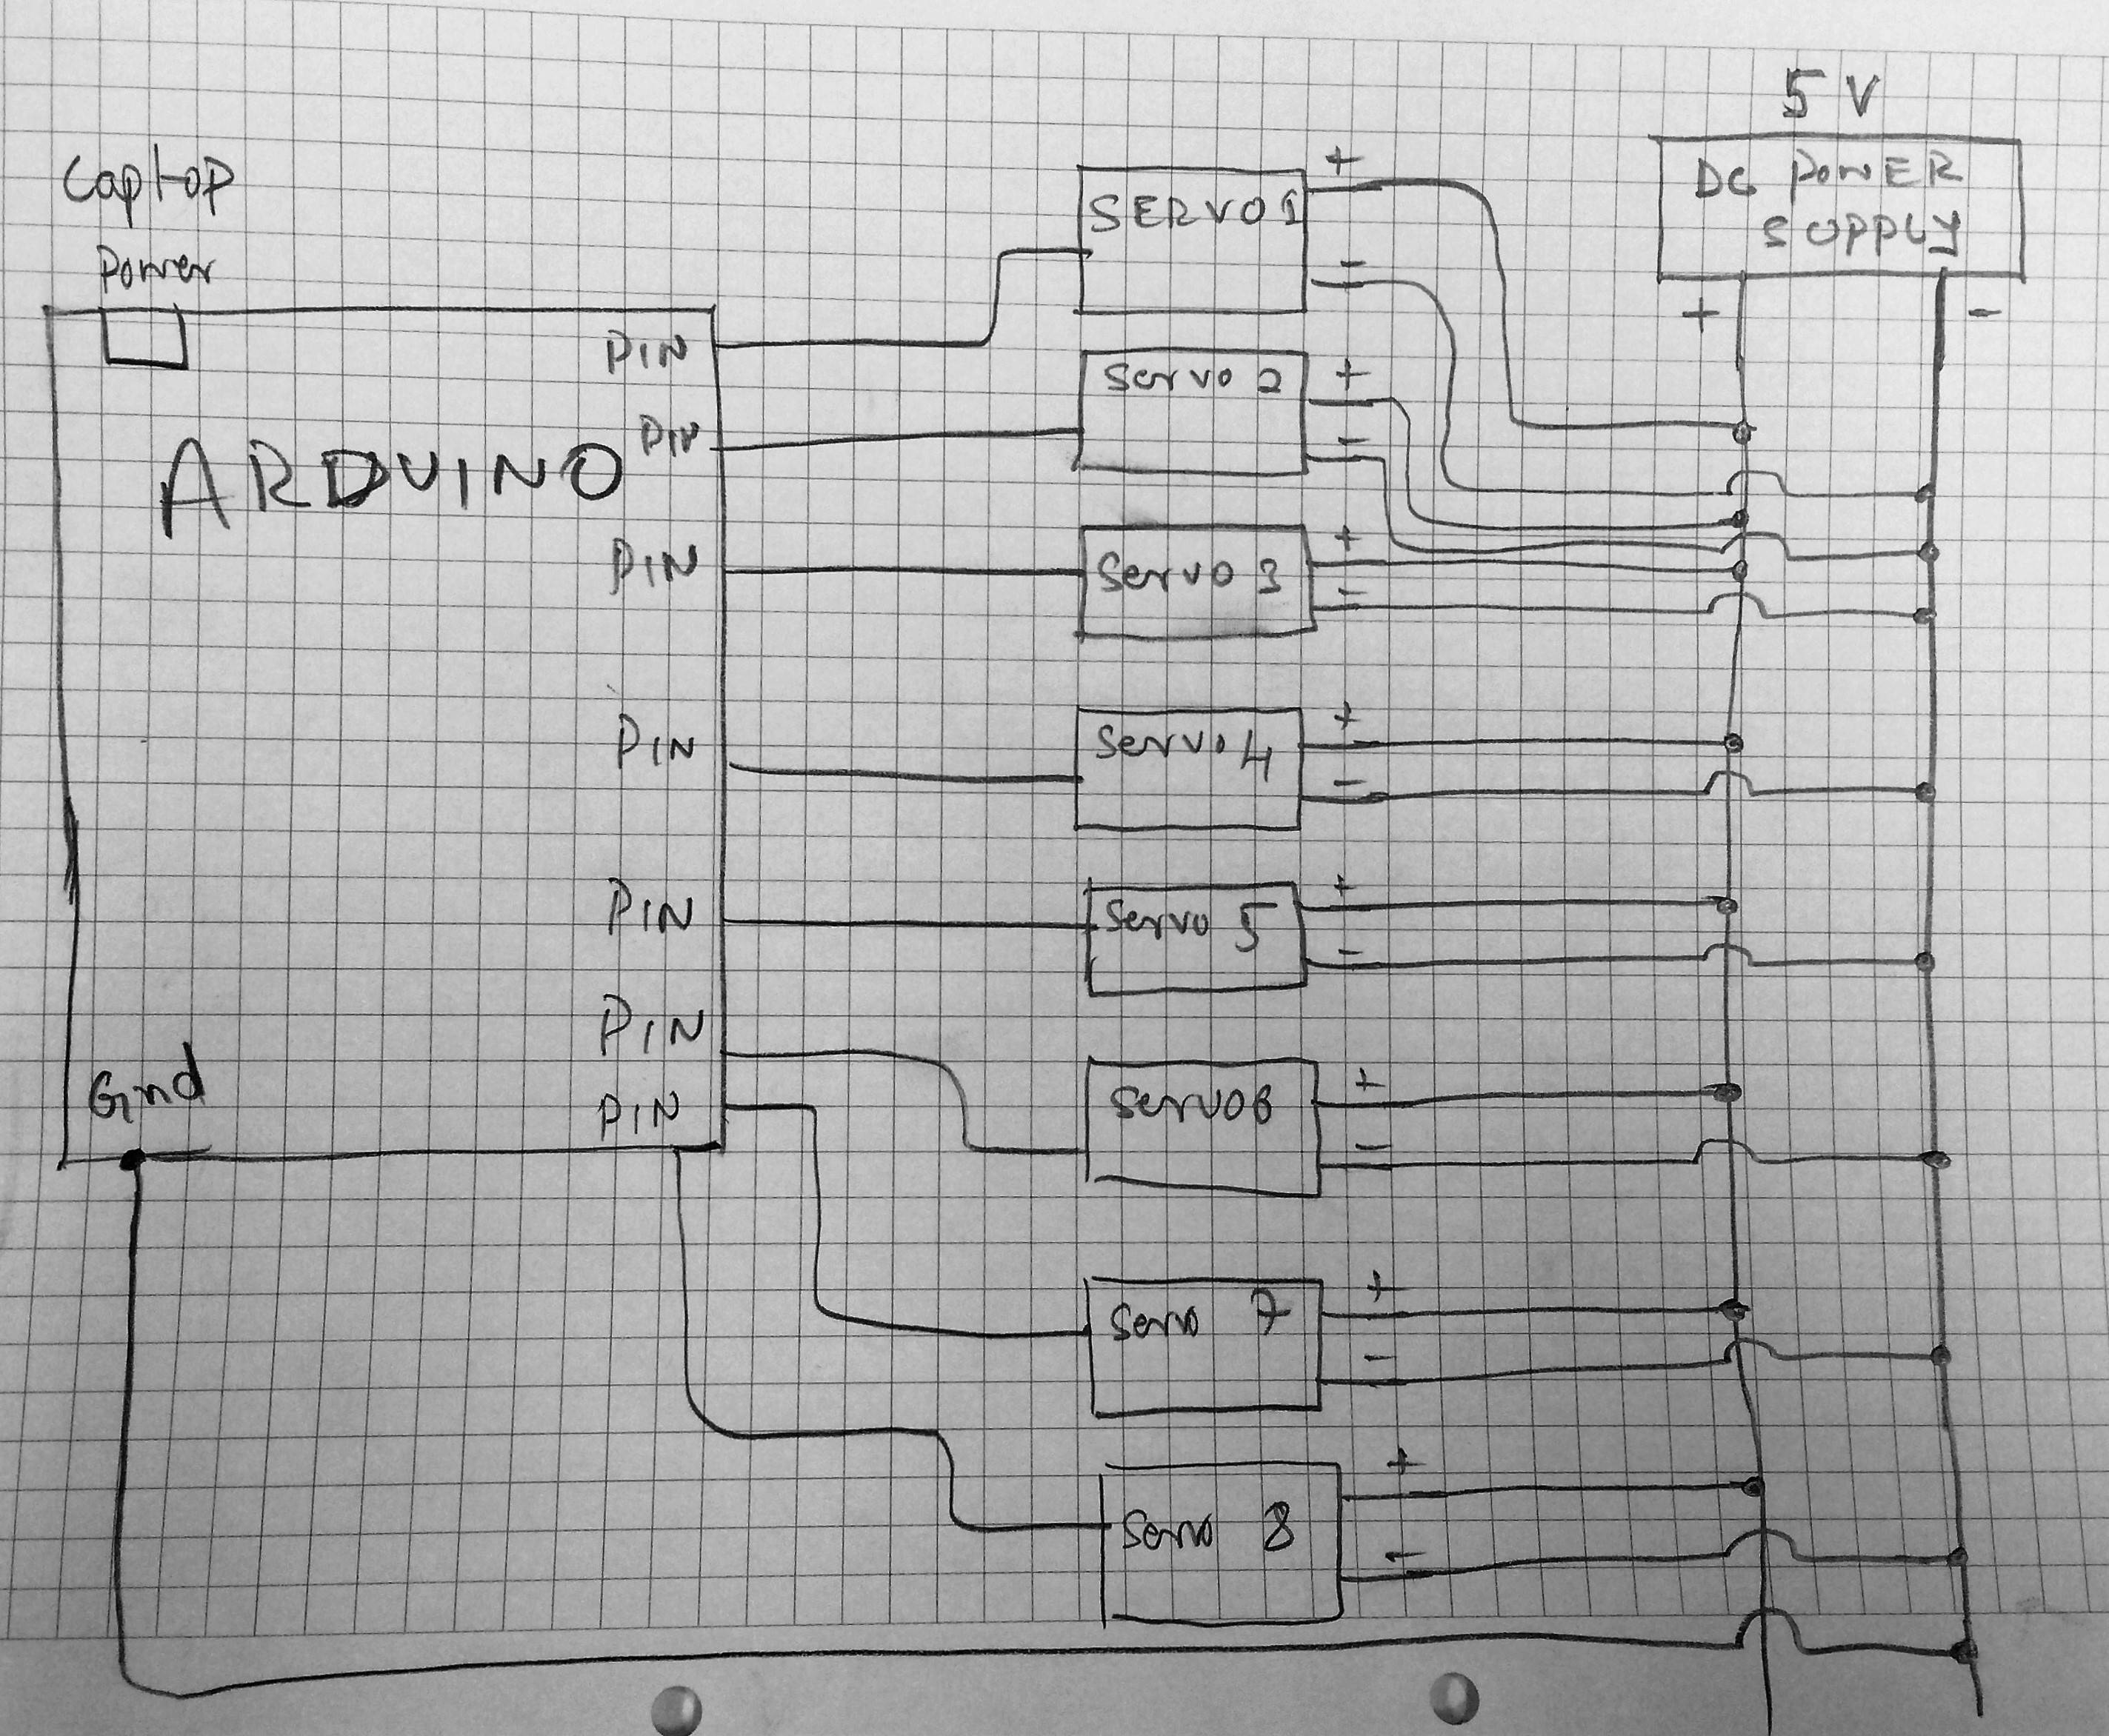 5 V
DC POWER
SUPPLY
+
-
Laptop
Power
ARDUINO
PIN
PIN
PIN
PIN
PIN
PIN
PIN
Gnd
SERVO 1
+
-
Servo 2
+
-
Servo 3
+
-
Servo 4
+
-
Servo 5
+
-
Servo 6
+
-
Servo 7
+
-
Servo 8
+
-